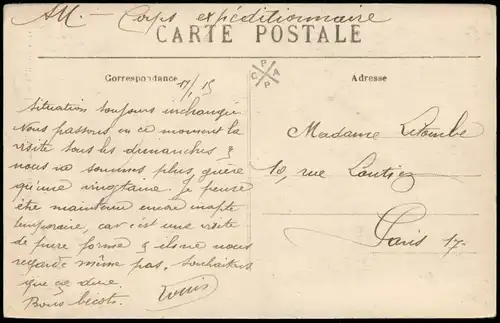 AM — Corps expéditionnaire
CARTE POSTALE
Correspondance
Adresse
17/1 15
CPAP
Situation toujours inchangée
Nous passons en ce moment la
visite tous les dimanches &
nous ne sommes plus guère
qu'une vingtaine. Je pense
être maintenu encore inapte
temporaire, car c'est une visite
de pure forme & ils ne nous
regarde même pas. Souhaitons
que ça dure.
Bons bécots.
Louis
Madame Letombe
10, rue Lantiez
Paris 17-